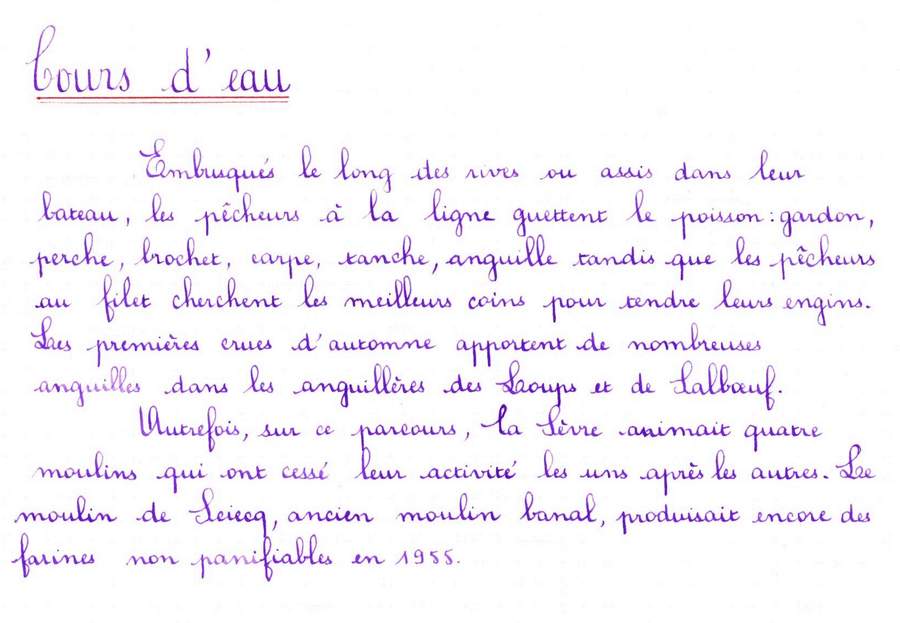 Cours d'eau
Embusqués le long des rives ou assis dans leur
bateau, les pêcheurs à la ligne guettent le poisson : gardon,
perche, brochet, carpe, tanche, anguille tandis que les pêcheurs
au filet cherchent les meilleurs coins pour tendre leurs engins.
Les premières crues d'automne apportent de nombreuses
anguilles dans les anguillères des Loups et de Salbœuf.
Autrefois, sur ce parcours, la Sèvre animait quatre
moulins qui ont cessé leur activité les uns après les autres. Le
moulin de Sciecq, ancien moulin banal, produisait encore des
farines non panifiables en 1955.